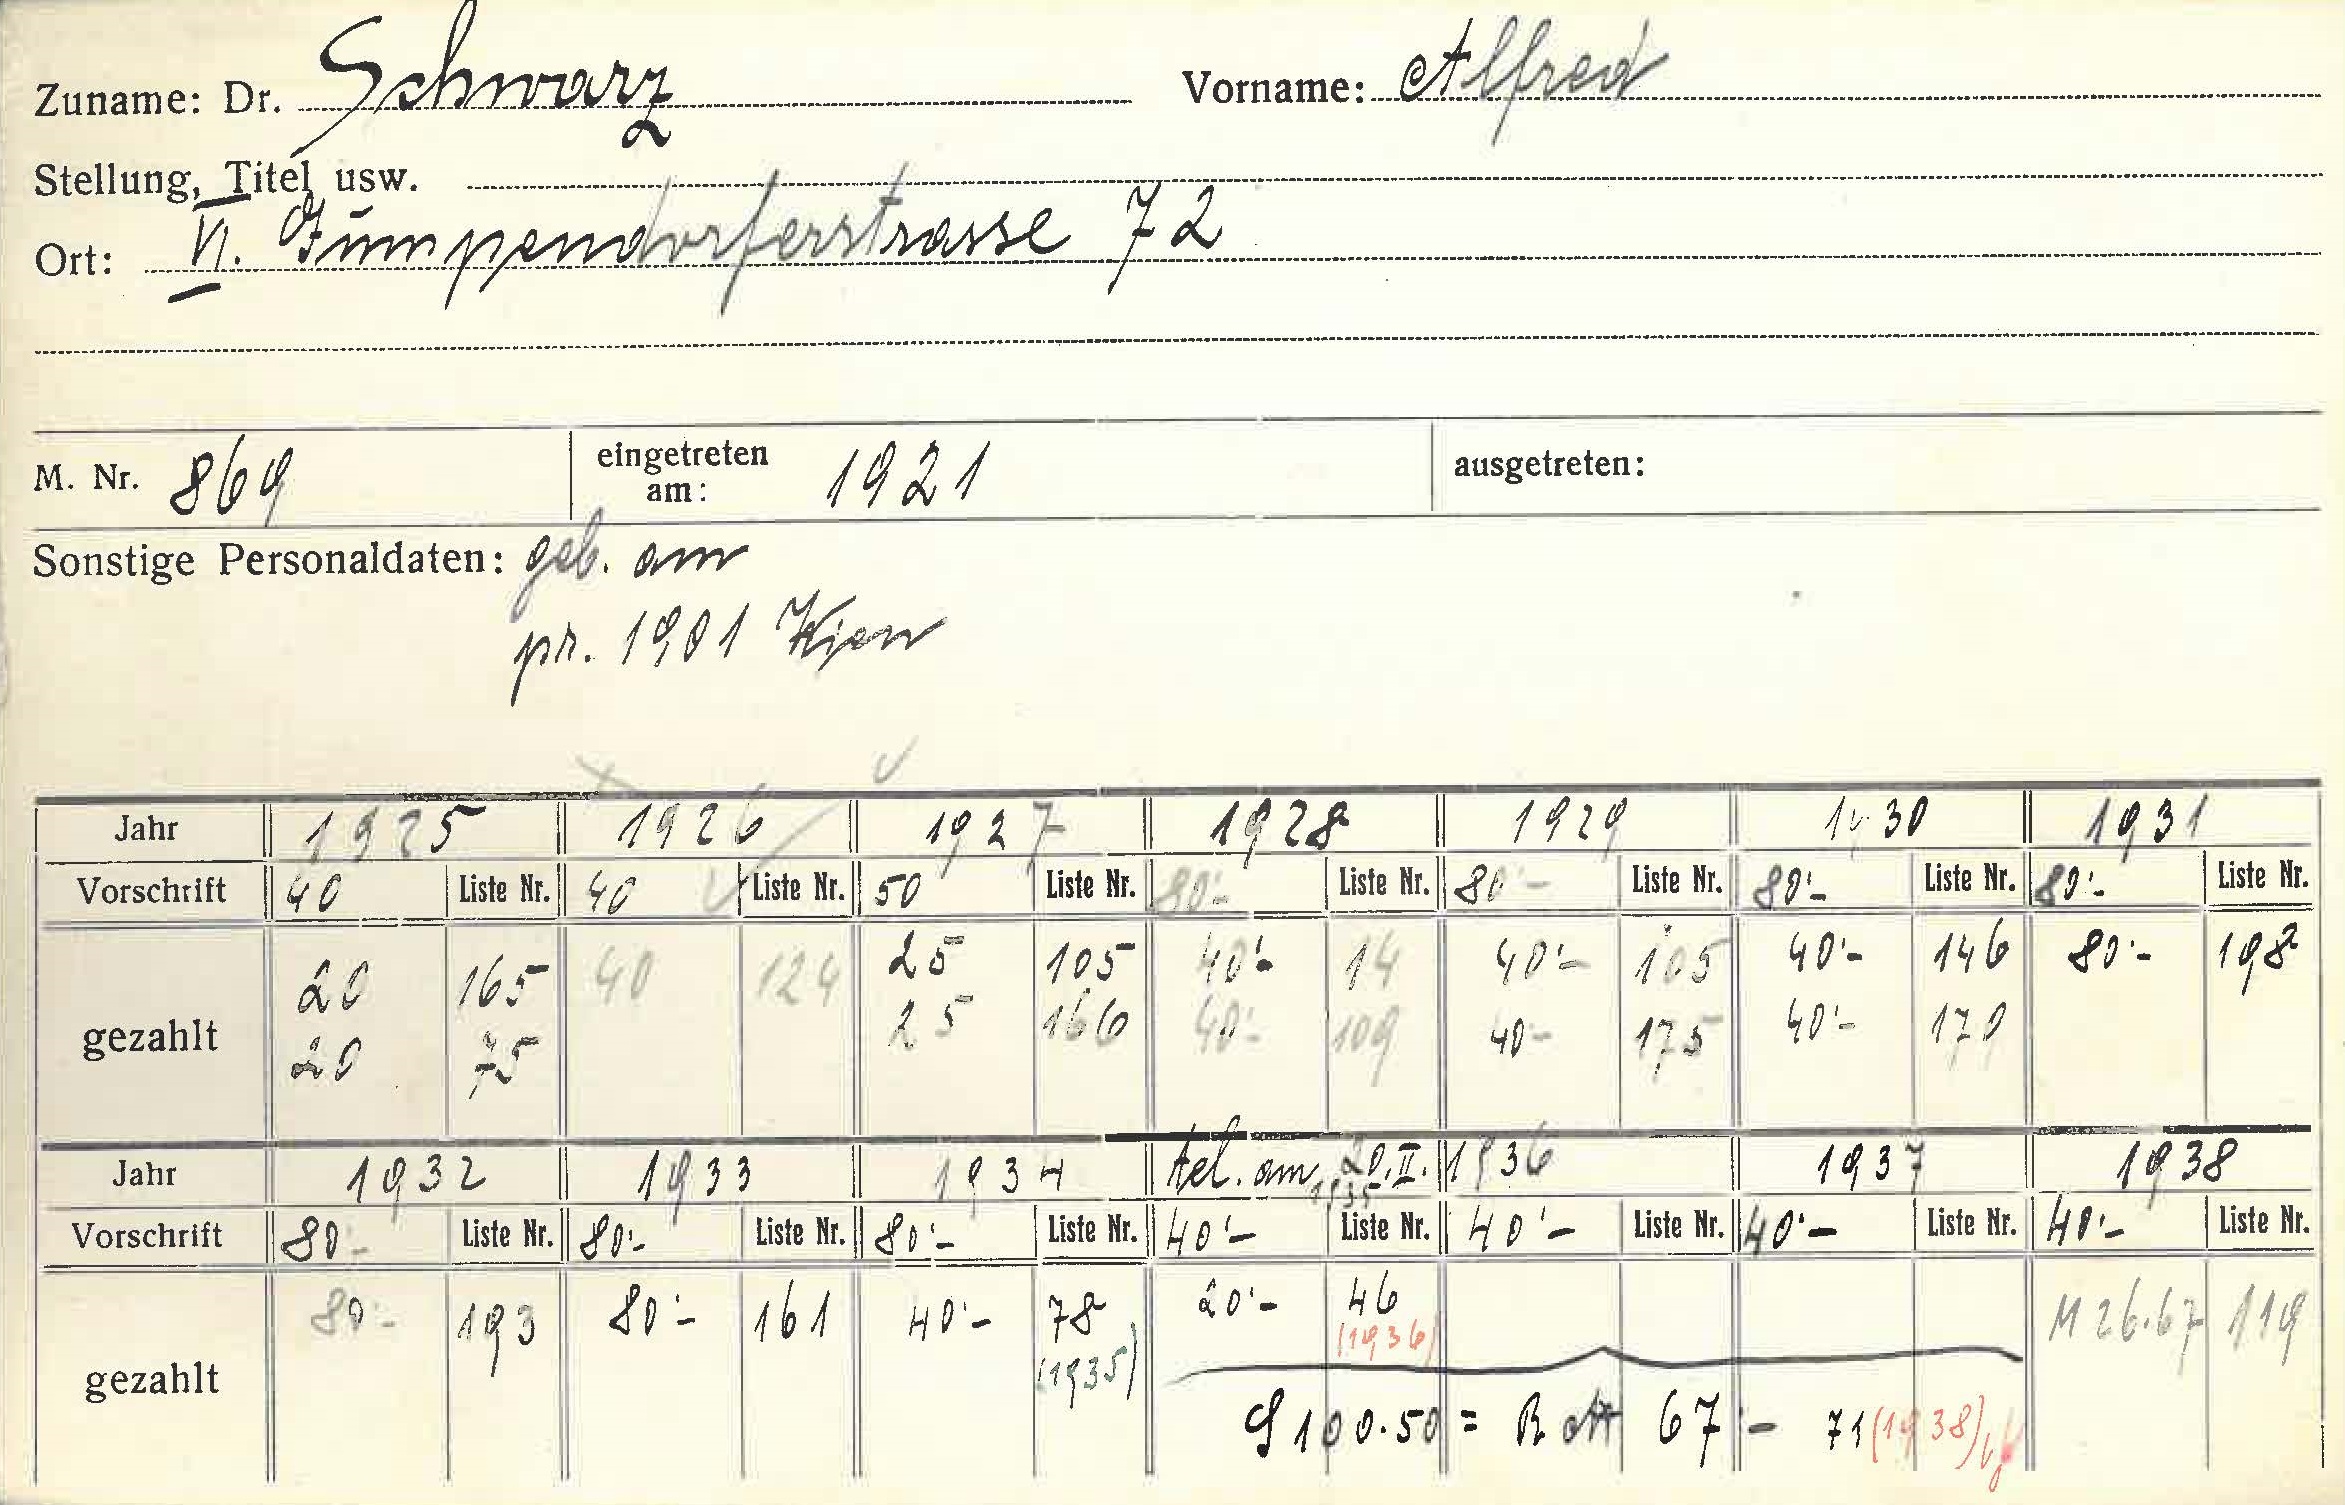 Zuname: Dr. Schwarz Vorname: Alfred
Stellung, Titel usw.
Ort: VI. Gumpendorferstrasse 72
M. Nr. 869 eingetreten am: 1921 ausgetreten:
Sonstige Personaldaten: geb. am
pr. 1901 Wien
Jahr 1925 1926 1927 1928 1929 1930 1931
Vorschrift 40 Liste Nr. 40 Liste Nr. 50 Liste Nr. 80'- Liste Nr. 80'- Liste Nr. 80'- Liste Nr. 80'- Liste Nr.
gezahlt 20 165 40 124 25 105 40'- 14 40'- 105 40'- 146 80'- 198
20 75 25 166 40'- 109 40'- 175 40'- 170
Jahr 1932 1933 1934 tel. am 20.II. 1935 1936 1937 1938
Vorschrift 80'- Liste Nr. 80'- Liste Nr. 80'- Liste Nr. 40'- Liste Nr. 40'- Liste Nr. 40'- Liste Nr. 40'- Liste Nr.
gezahlt 80'- 193 80'- 161 40'- 78 20'- 46 M 26.67 119
(1935) (1936)
S 100.50 = R M 67'- 71 (1938)